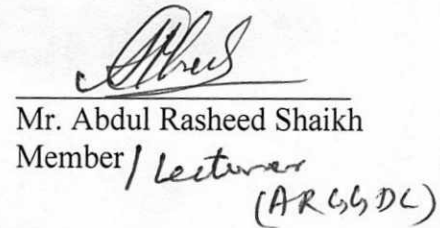 Mr. Abdul Rasheed Shaikh
Member / Lecturer
(ARGGDC)